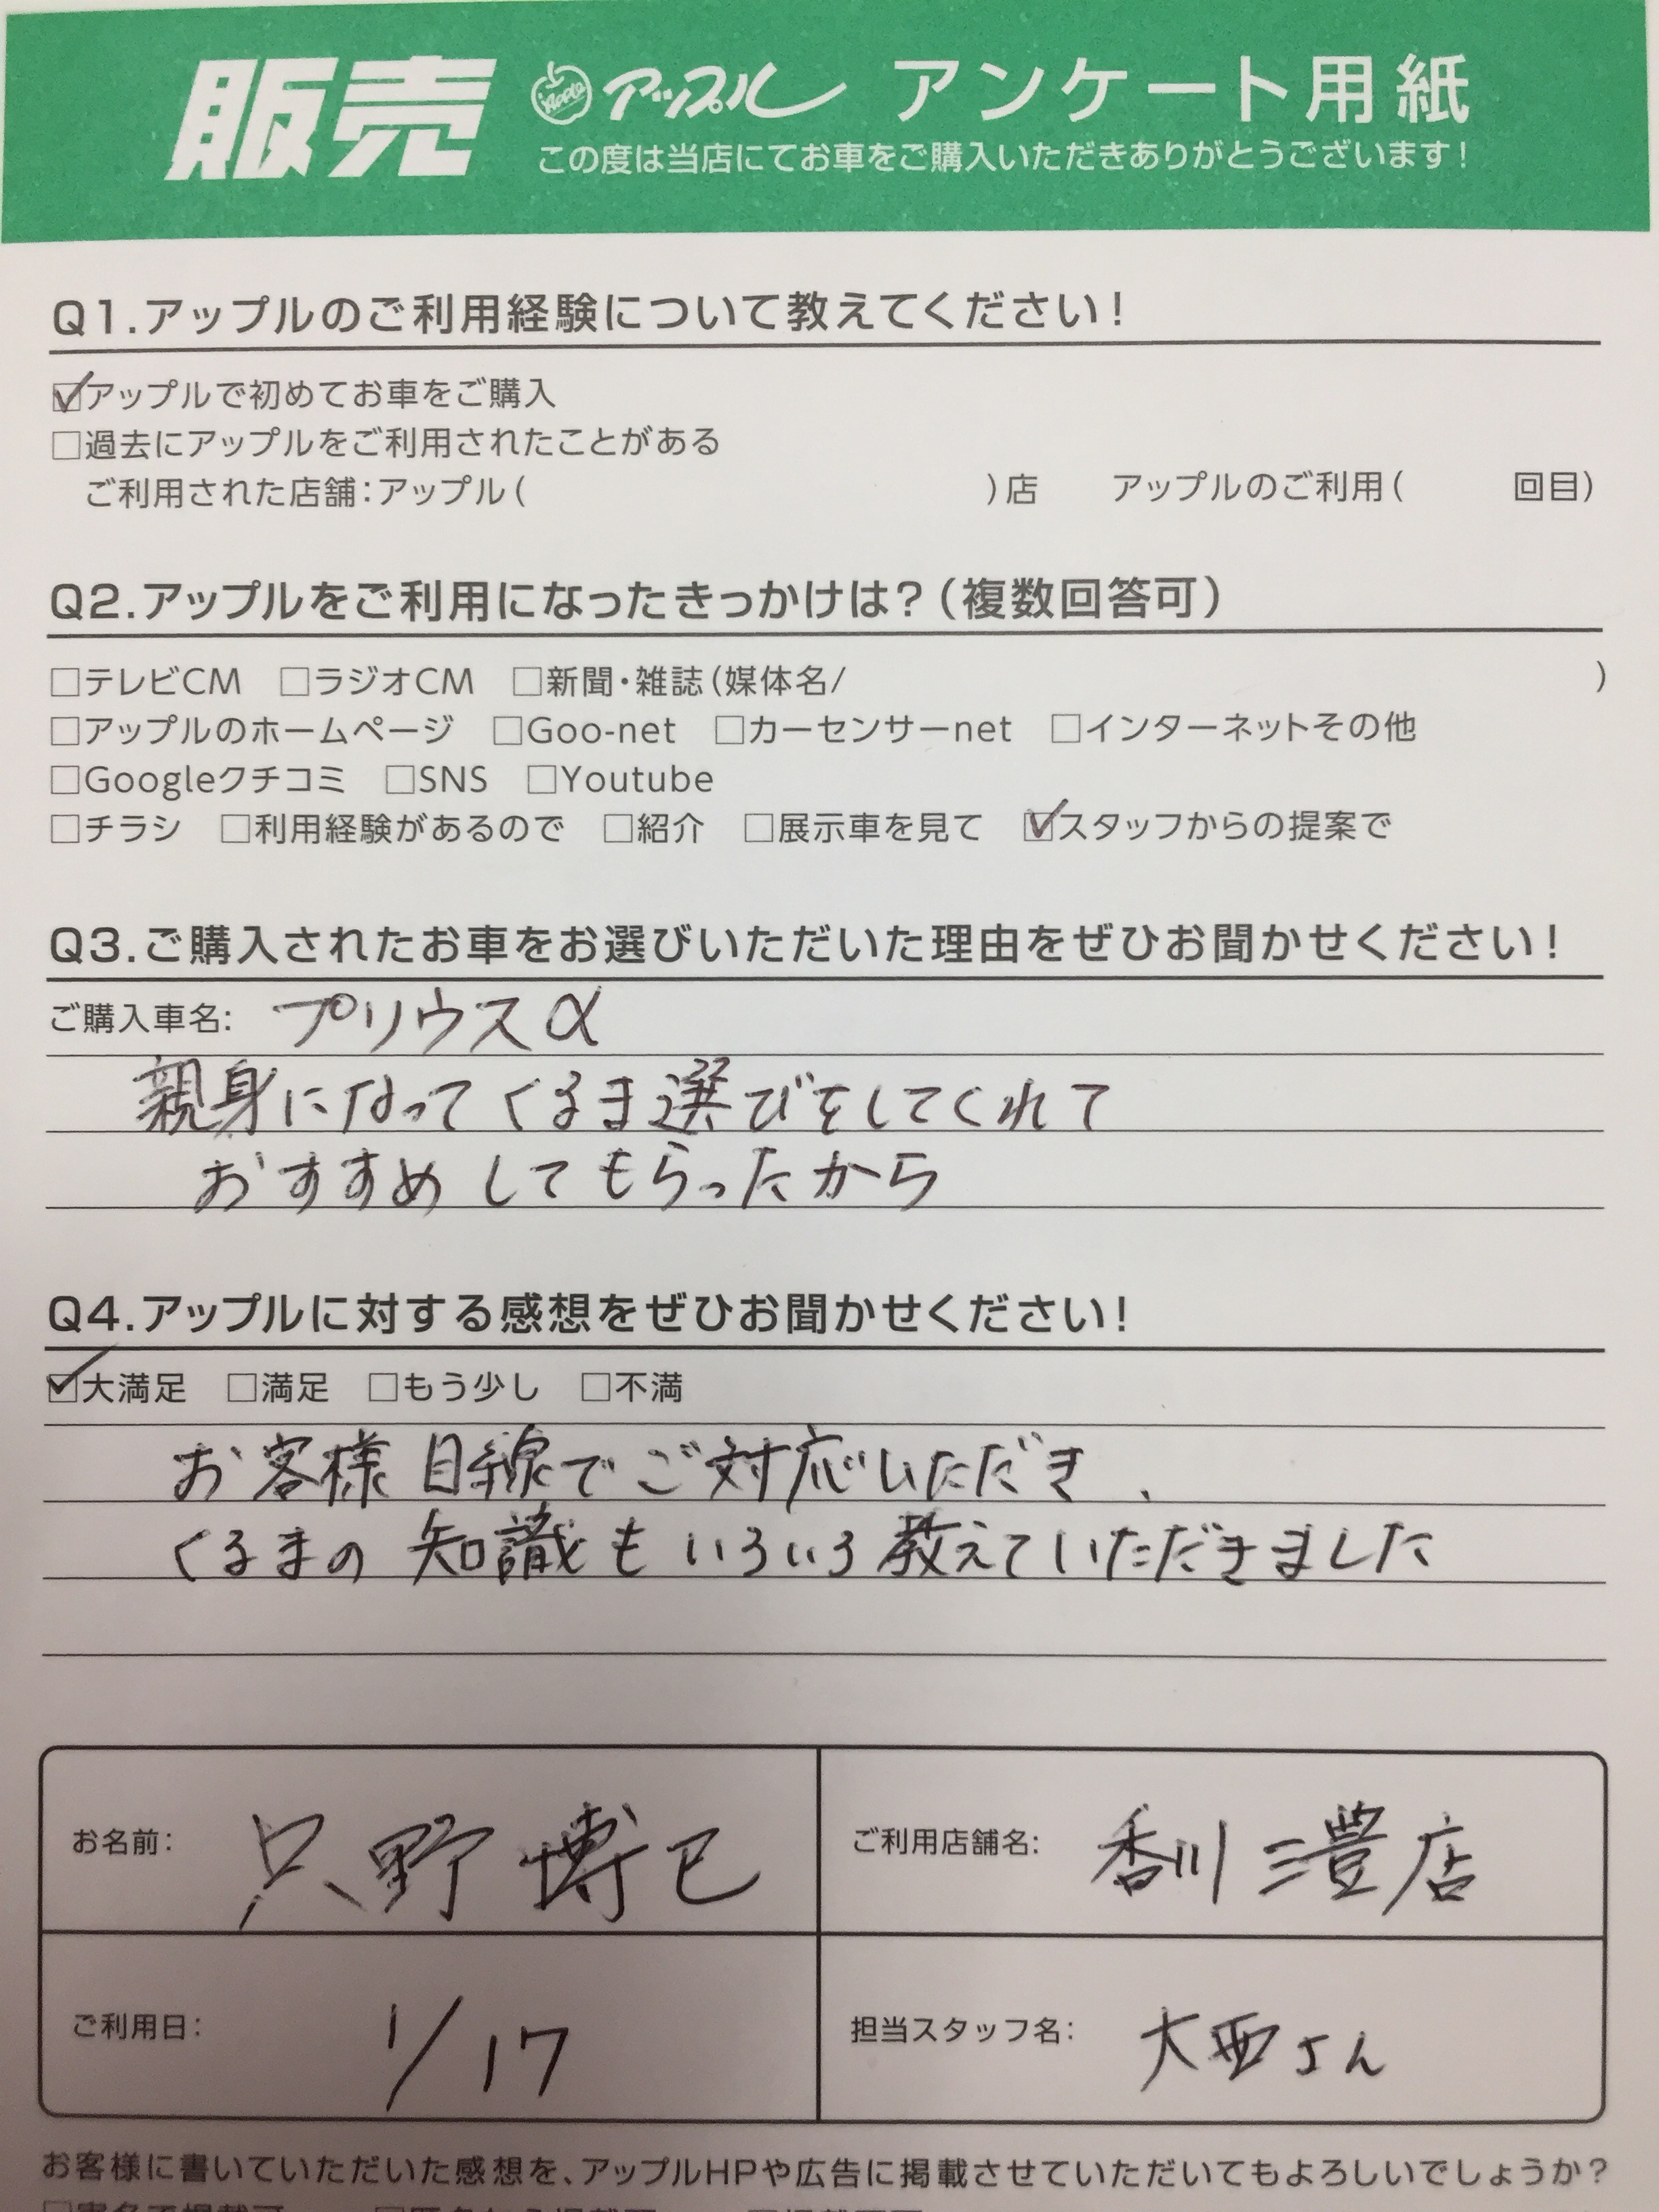 販売 Apple アップル アンケート用紙
この度は当店にてお車をご購入いただきありがとうございます!
Q1.アップルのご利用経験について教えてください!
☑アップルで初めてお車をご購入
□過去にアップルをご利用されたことがある
ご利用された店舗:アップル( )店 アップルのご利用( 回目)
Q2.アップルをご利用になったきっかけは?(複数回答可)
□テレビCM □ラジオCM □新聞・雑誌(媒体名/ )
□アップルのホームページ □Goo-net □カーセンサーnet □インターネットその他
□Googleクチコミ □SNS □Youtube
□チラシ □利用経験があるので □紹介 □展示車を見て ☑スタッフからの提案で
Q3.ご購入されたお車をお選びいただいた理由をぜひお聞かせください!
ご購入車名: プリウスα
親身になってくるま選びをしてくれて
おすすめしてもらったから
Q4.アップルに対する感想をぜひお聞かせください!
☑大満足 □満足 □もう少し □不満
お客様目線でご対応いただき、
くるまの知識もいろいろ教えていただきました
お名前: 只野博巳
ご利用店舗名: 香川三豊店
ご利用日: 1/17
担当スタッフ名: 大西さん
お客様に書いていただいた感想を、アップルHPや広告に掲載させていただいてもよろしいでしょうか?